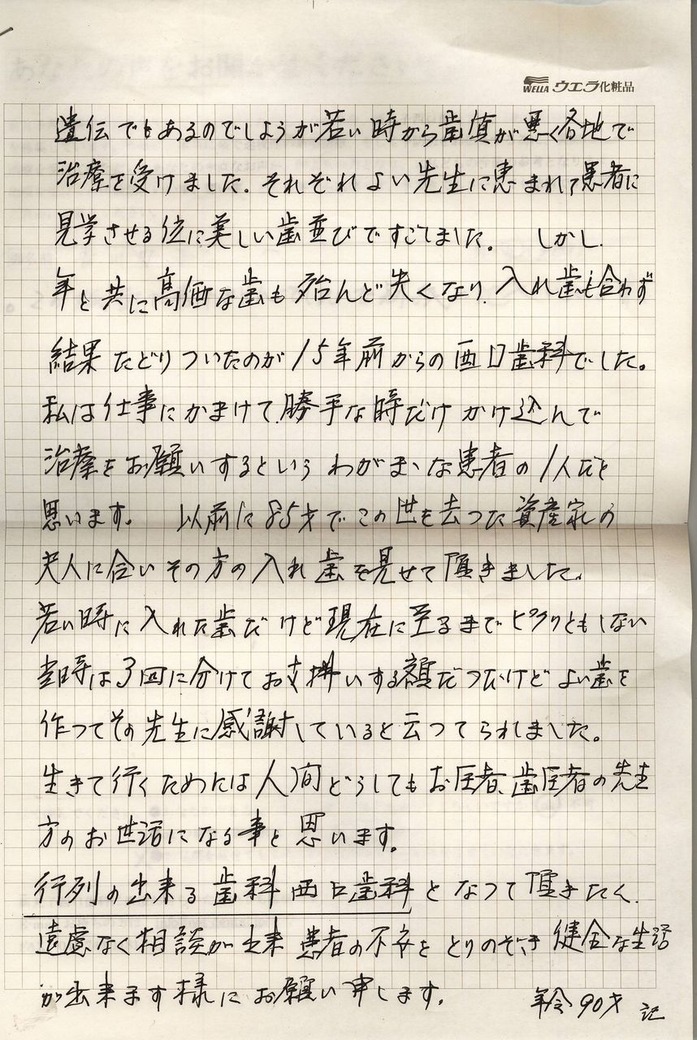 WELLA ウエラ化粧品
遺伝でもあるのでしようが若い時から歯質が悪く各地で
治療を受けました。それぞれよい先生に恵まれて患者に
見学させる位に美しい歯並びですごしました。 しかし、
年と共に高価な歯も殆んど失くなり、入れ歯も合わず
結果たどりついたのが15年前からの西口歯科でした。
私は仕事にかまけて、勝手な時だけかけ込んで
治療をお願いするというわがまゝな患者の1人だと
思います。 以前に85才でこの世を去つた資産家の
夫人に合いその方の入れ歯を見せて頂きました。
若い時に入れた歯だけど現在に至るまでピクリともしない
当時は3回に分けてお支拂いする額だつたけどよい歯を
作つてその先生に感謝していると云つてられました。
生きて行くためには人間どうしてもお医者、歯医者の先生
方のお世話になる事と思います。
行列の出来る歯科西口歯科となつて頂きたく、
遠慮なく相談が出来患者の不安をとりのぞき健全な生活
が出来ます様にお願い申します。
年令90才 記